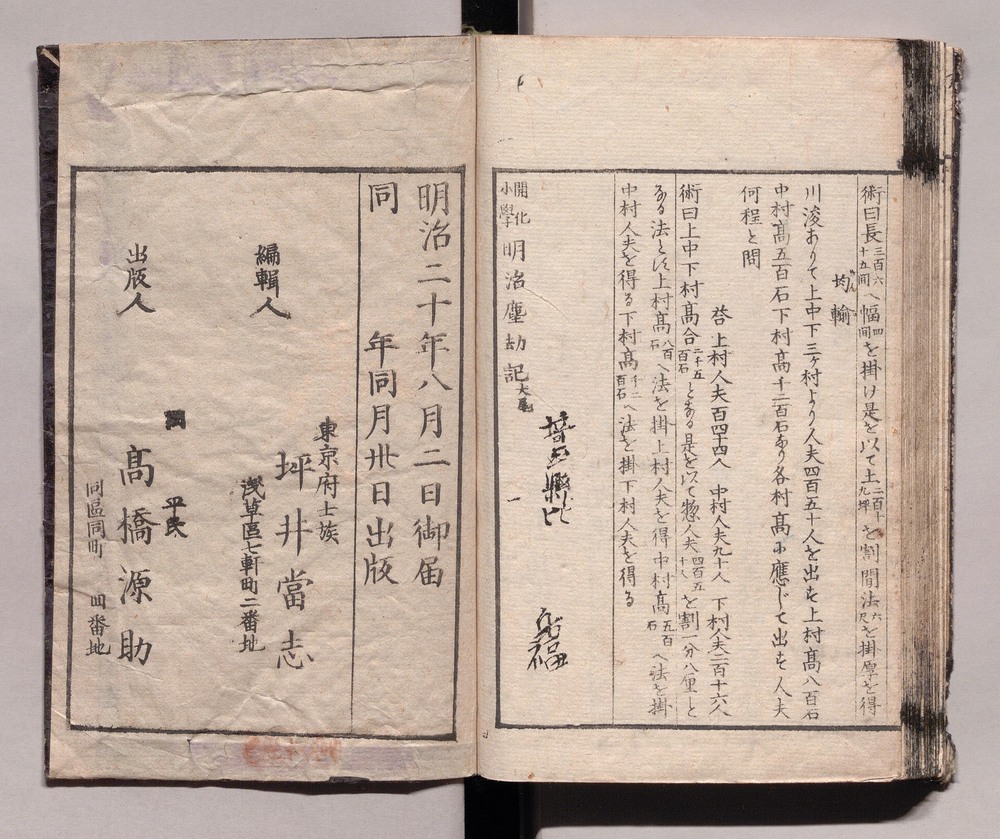 術曰長三百六十五間へ幅四間を掛け是を以て土二百十九坪を割間法六尺を掛厚を得
均輸
川浚ありて上中下三ヶ村より人夫四百五十人を出す上村髙八百石
中村髙五百石下村髙千二百石あり各村髙に應じて出す人夫
何程と問
答上村人夫百四十四人 中村人夫九十人 下村人夫二百十六人
術曰上中下村髙合二千五百石となる是を以て惣人夫四百五十人を割一分八厘と
なる法とし上村髙八百石へ法を掛上村人夫を得中村髙五百石へ法を掛
中村人夫を得る下村髙千二百石へ法を掛下村人夫を得る
開化小學明治塵劫記大尾
明治二十年八月二日御届
同 年同月卅日出版
東京府士族
編輯人 坪井當志
淺草區七軒町二番地
平民
出版人 髙橋源助
同區同町 四番地